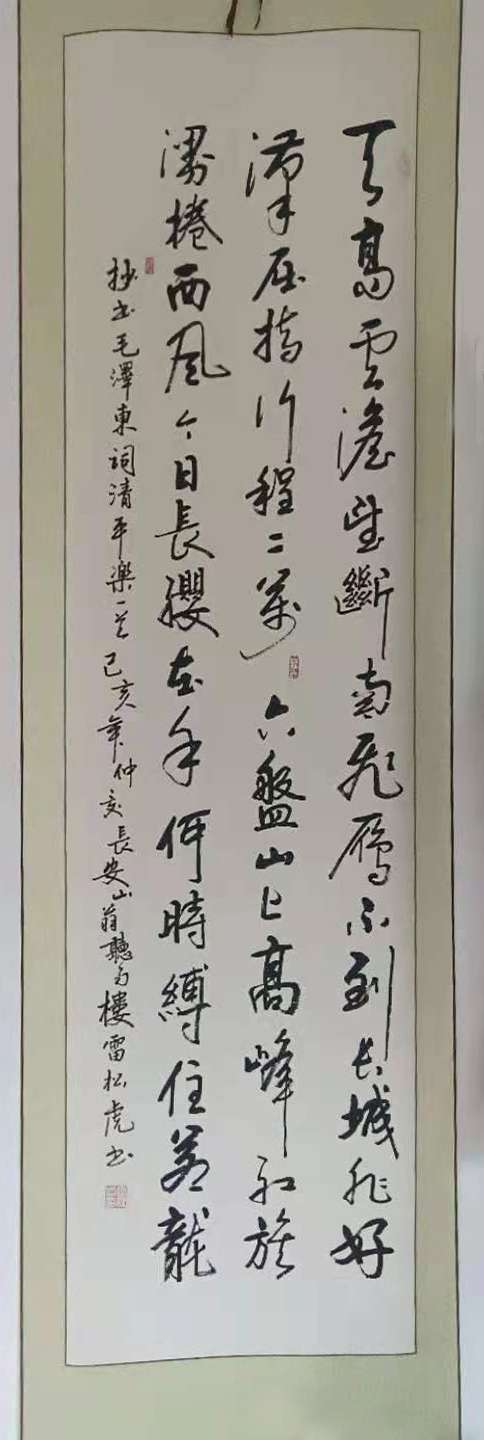 天高雲澹望斷南飛雁不到长城非好
漢屈指行程二萬六盤山上高峰紅旗
漫捲西風今日長纓在手何時縛住蒼龍
抄书毛澤東詞清平樂一首己亥年仲亥長安山翁聽雨樓雷松虎书